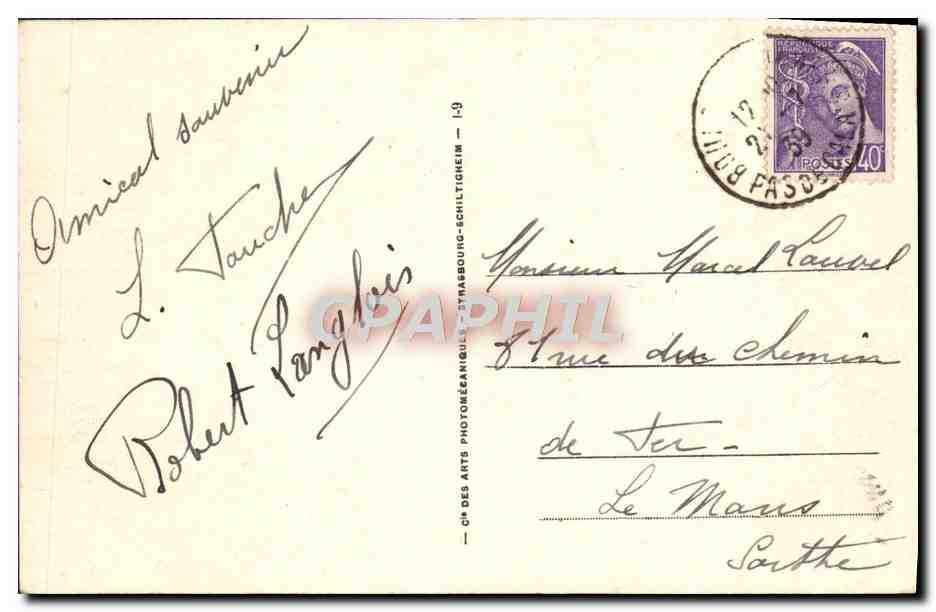 Amical souvenir
L. Touche
Robert Langlois
Cie DES ARTS PHOTOMÉCANIQUES - STRASBOURG-SCHILTIGHEIM - I-9
RÉPUBLIQUE
FRANÇAISE
POSTES 40
12
39
PAS DE CALAIS
Monsieur Marcel Lauvel
81 rue du chemin
de Fer -
Le Mans
Sarthe
CPAPHIL